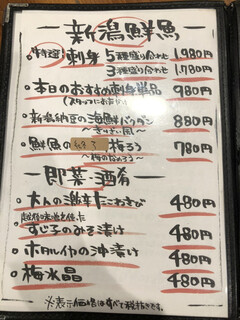 新潟鮮魚
・特選 刺身 5種盛り合わせ 1,980円
3種盛り合わせ 1,780円
・本日のおすすめ刺身単品 980円
・新潟納豆の海鮮バクダン 880円
〜きりざい風〜
・鮮魚の 梅ろう 780円
〜梅のなめろう〜
即菜・酒肴
・大人の激辛たこわさび 480円
すじ子のみる漬け 480円
・ホタルイカの沖漬け 480円
・梅水晶 480円
※表示価格はすべて税抜きです。